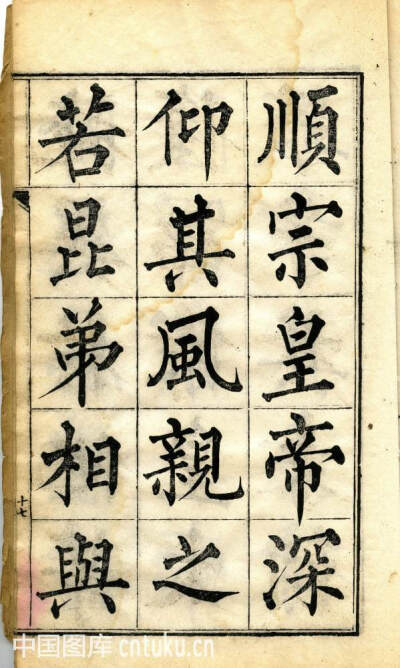 順宗皇帝深
仰其風親之
若昆弟相與
十七
中国图库 cntuku.cn